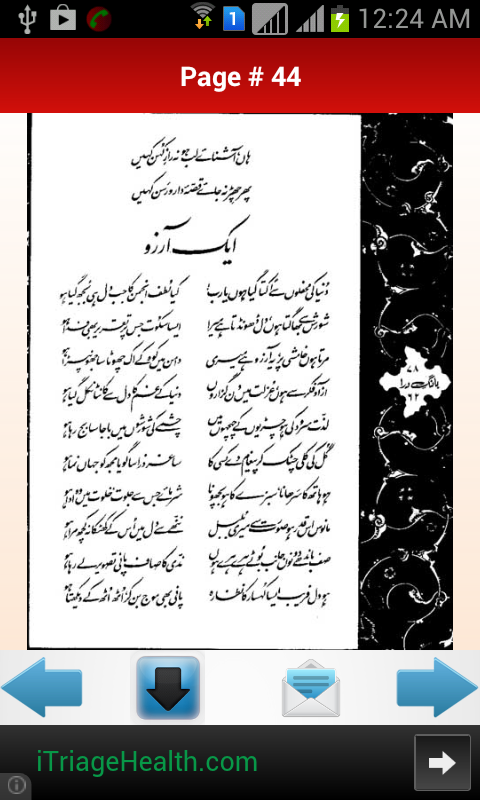 12:24 AM
1
Page # 44
ہاں آشنائے لب ہو نہ رازِ کہن کہیں
پھر چھڑ نہ جائے قصّۂ دار و رسن کہیں
ایک آرزو
دُنیا کی محفلوں سے اُکتا گیا ہوں یا رب! کیا لُطف انجمن کا جب دل ہی بُجھ گیا ہو
شورش سے بھاگتا ہوں، دل ڈھونڈتا ہے میرا ایسا سکُوت جس پر تقریر بھی فدا ہو
مرتا ہوں خامشی پر، یہ آرزو ہے میری دامن میں کوہ کے اک چھوٹا سا جھونپڑا ہو
آزاد فکر سے ہوں، عزلت میں دن گزاروں دنیا کے غم کا دل سے کانٹا نکل گیا ہو
لذّت سرود کی ہو چڑیوں کے چہچہوں میں چشمے کی شورشوں میں باجا سا بج رہا ہو
گُل کی کلی چٹک کر پیغام دے کسی کا ساغر ذرا سا گویا مجھ کو جہاں نما ہو
ہو ہاتھ کا سرھانا، سبزے کا ہو بچھونا شرمائے جس سے جلوت، خلوت میں وہ ادا ہو
مانوس اس قدر ہو صورت سے میری بُلبل ننھّے سے دل میں اُس کے کھٹکا نہ کچھ مرا ہو
صف باندھے دونوں جانب بُوٹے ہرے ہرے ہوں ندّی کا صاف پانی تصویر لے رہا ہو
ہو دل فریب ایسا کُہسار کا نظارہ پانی بھی موج بن کر اُٹھ اُٹھ کے دیکھتا ہو
۷۸
بانگِ درا
۶۲
iTriageHealth.com